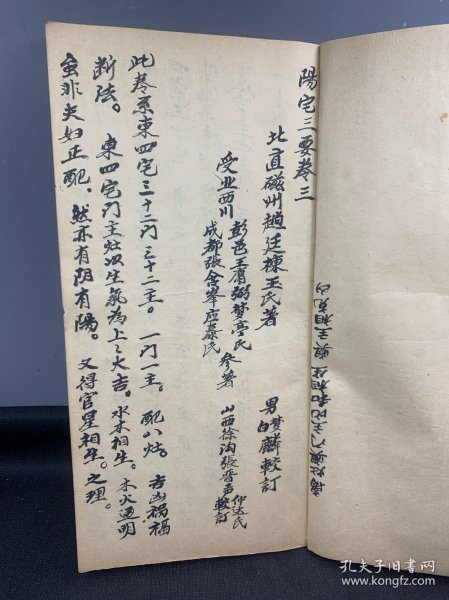 陽宅三要卷三
北直磁州趙廷棟玉氏著
男夢麟較訂
白
受业西川
彭邑王賡弼梦亭氏
成都張含峯应泰氏
参著
山西徐沟張晋声仲达氏
較訂
此卷系東四宅三十二门三十二主。一门一主。配八灶。吉凶祸福
断法。東四宅门主灶以生氣為上上大吉。水木相生。木火通明
虽非夫妇正配、然亦有阴有陽。又得官星相生。之理。
孔夫子旧书网
www.kongfz.com